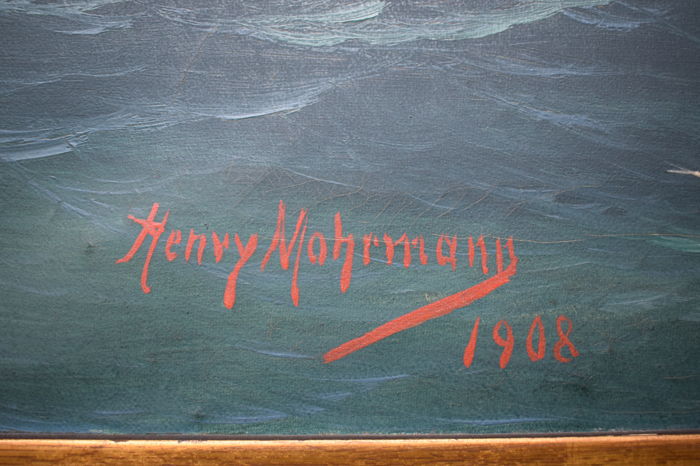 Henry Mohrmann
1908